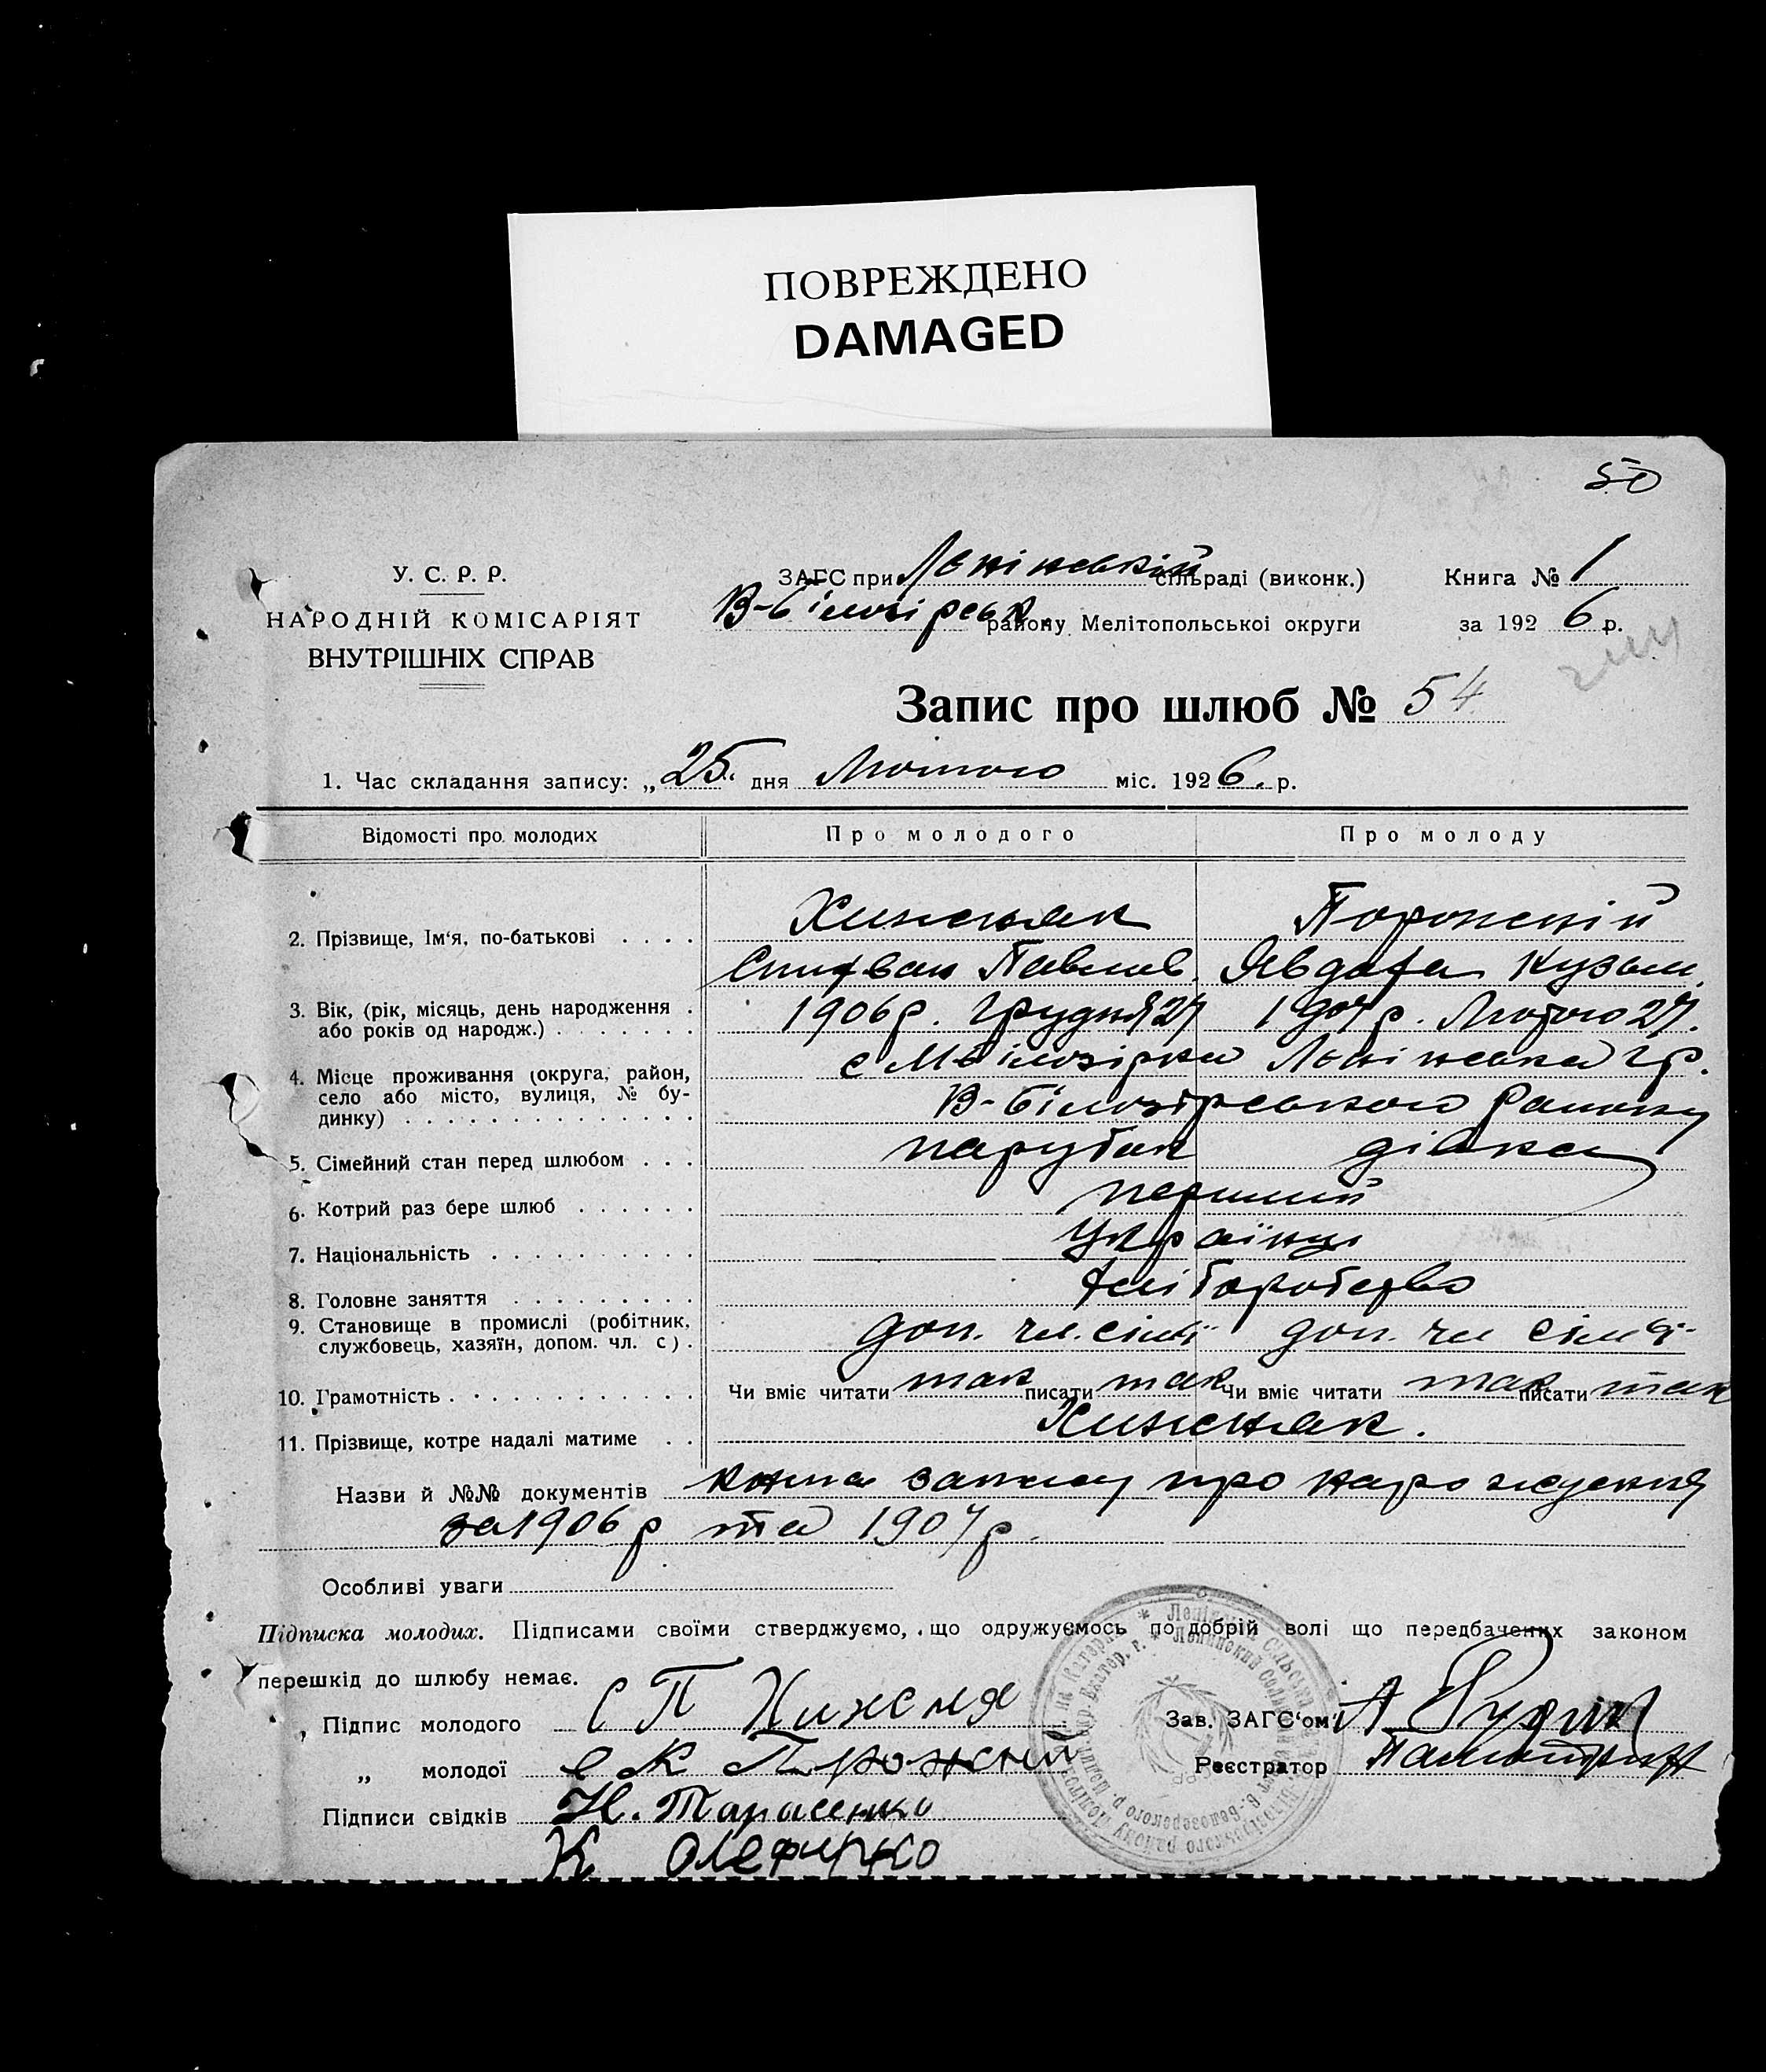 ПОВРЕЖДЕНО
DAMAGED
50
У. С. Р. Р.
НАРОДНІЙ КОМІСАРІЯТ
ВНУТРІШНІХ СПРАВ
ЗАГС при Ленінській сільраді (виконк.)
В-Білозірськ. району Мелітопольської округи
Книга № 1
за 1926 р.
Запис про шлюб № 54
1. Час складання запису: „25" дня Лютого міс. 1926. р.
Відомості про молодих Про молодого Про молоду
2. Прізвище, Ім'я, по-батькові Хижняк Порожній
Павлов. Явдоха Кузьм.
3. Вік, (рік, місяць, день народження або років од народж.) 1906 р. Грудня 27 1907 р. Лютого 27.
4. Місце проживання (округа, район, село або місто, вулиця, № будинку) с М-Білозірка Ленінська гр.
В-Білозірського Району
5. Сімейний стан перед шлюбом парубок дівка
6. Котрий раз бере шлюб перший
7. Національність Українці
8. Головне заняття хліборобство
9. Становище в промислі (робітник, службовець, хазяїн, допом. чл. с) доп. чл. сімї доп. чл сімї
10. Грамотність Чи вміє читати так писати так Чи вміє читати так писати так
11. Прізвище, котре надалі матиме Хиженяк.
Назви й №№ документів книга запису про народження
за 1906 р та 1907 р.
Особливі уваги
Підписка молодих. Підписами своїми стверджуємо, що одружуємось по добрій волі що передбачених законом
перешкід до шлюбу немає.
Підпис молодого С П Хижєня
Зав. ЗАГС'ом А
„ молодої є К Порожній
Реєстратор
Підписи свідків Н. Тарасенко
К Олефирко